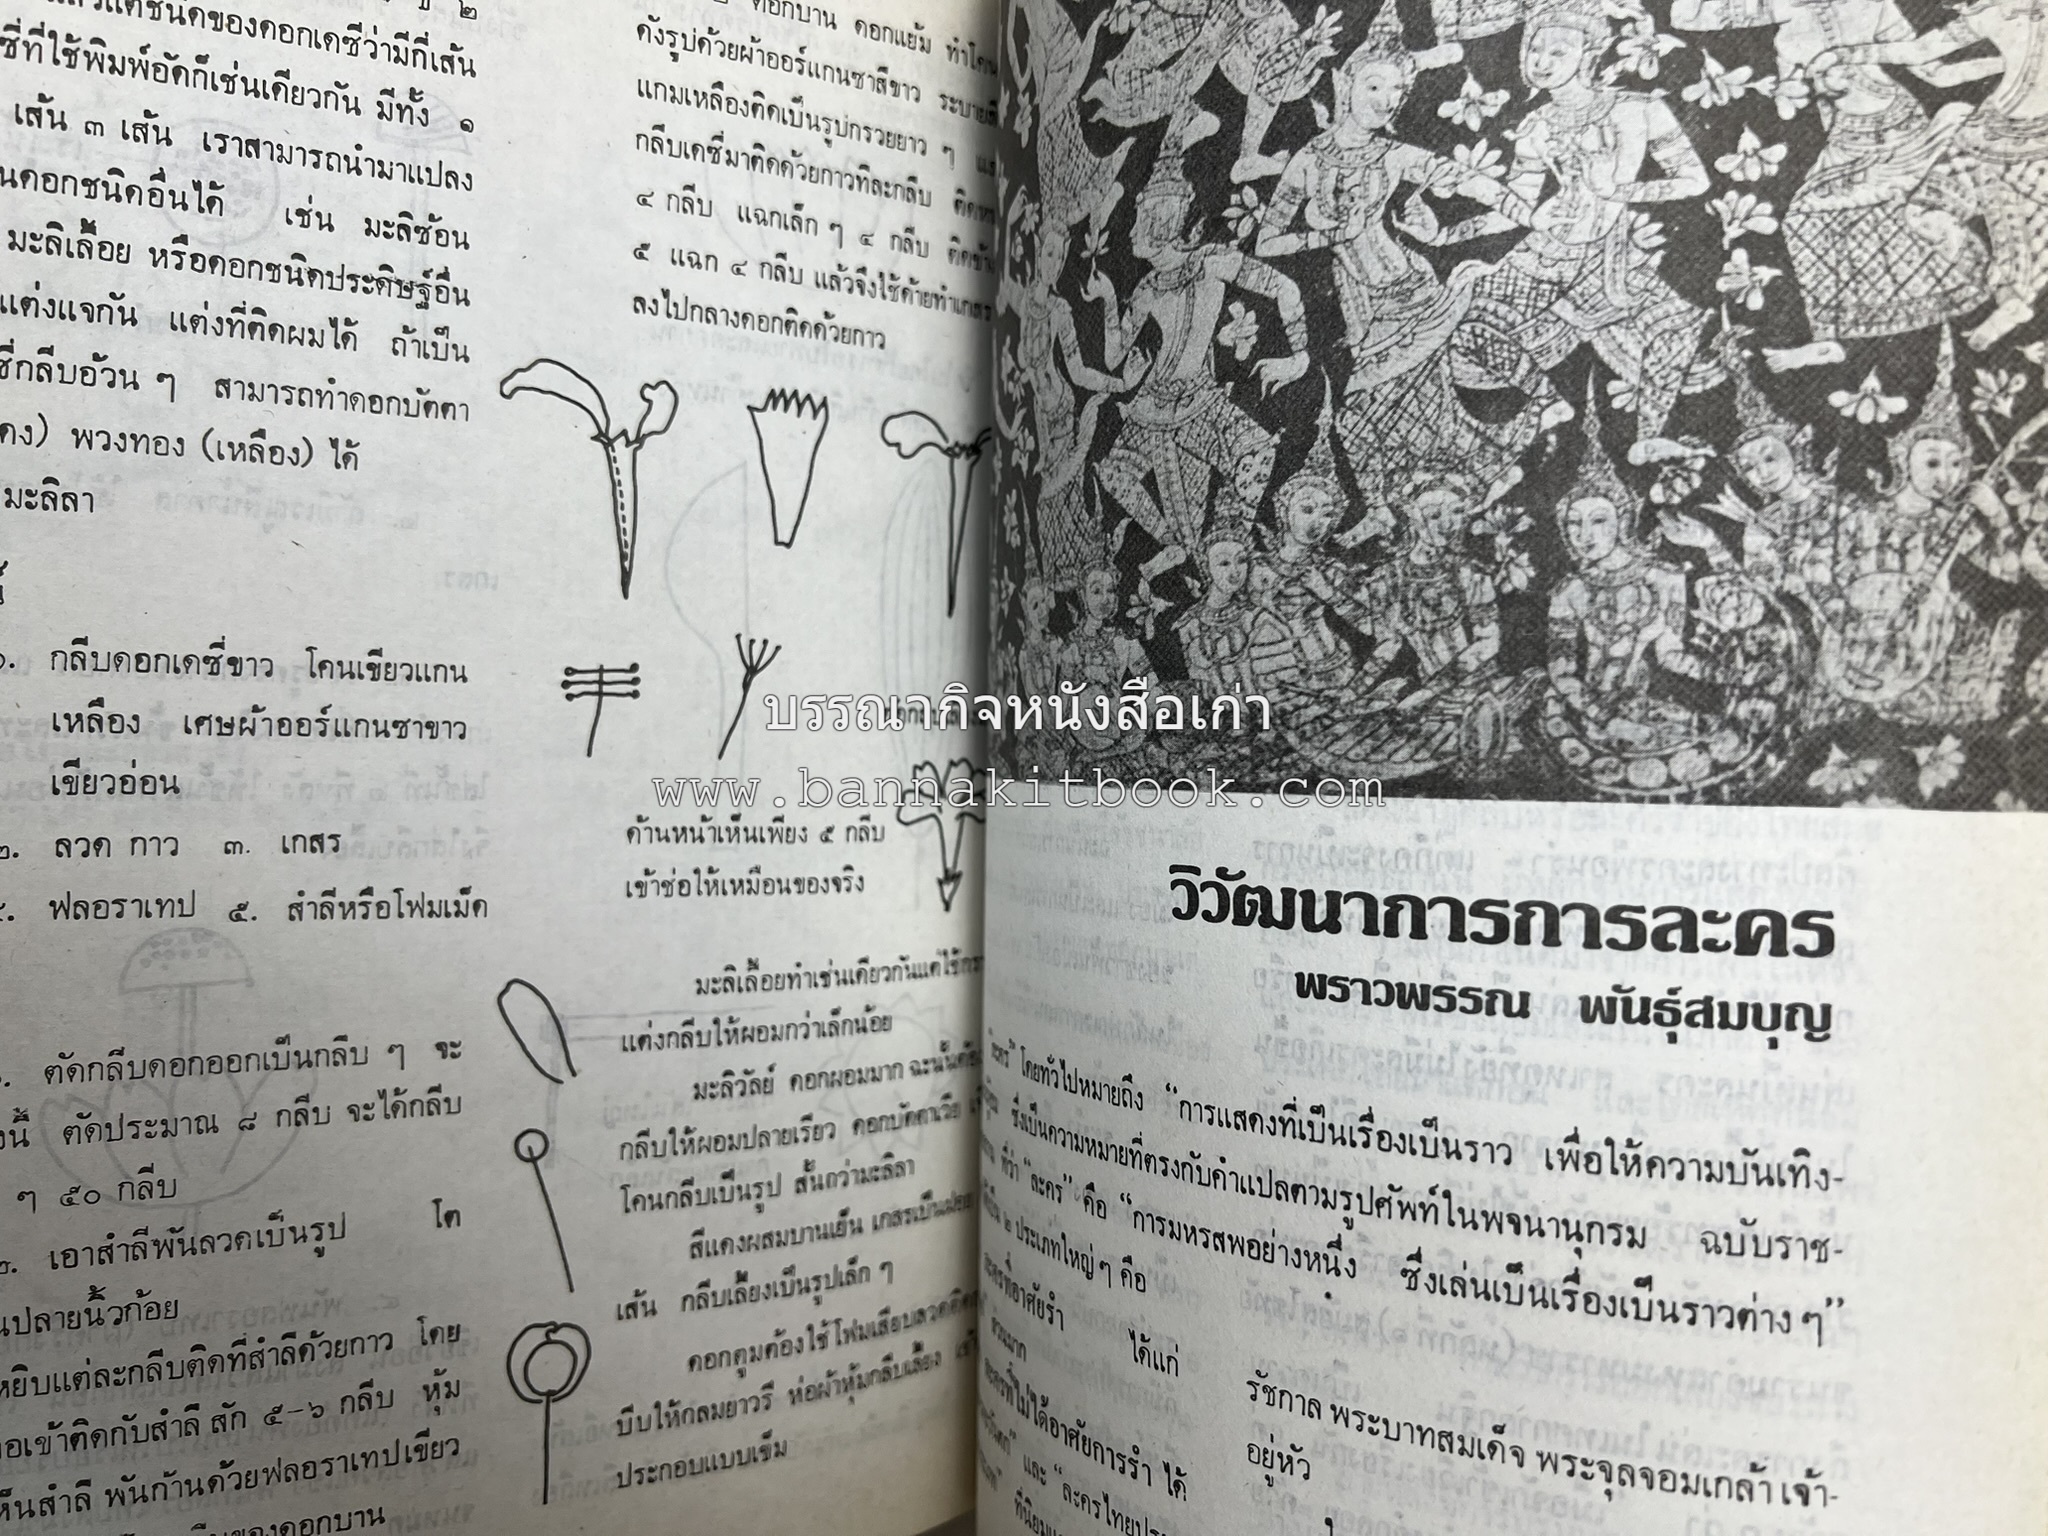 แล้วแต่ชนิดของดอกเดซีว่ามีกี่เส้น
ซี่ที่ใช้พิมพ์อัดก็เช่นเดียวกัน มีทั้ง ๑
เส้น ๓ เส้น เราสามารถนำมาแปลง
นดอกชนิดอื่นได้ เช่น มะลิซ้อน
มะลิเลื้อย หรือดอกชนิดประดิษฐ์อื่น
แต่งแจกัน แต่งที่ติดผมได้ ถ้าเป็น
ซี่กลีบอ้วน ๆ สามารถทำดอกบัตตา
พวงทอง (เหลือง) ได้
มะลิลา
กลีบดอกเดซี่ขาว โคนเขียวแกน
เหลือง เศษผ้าออร์แกนซาขาว
เขียวอ่อน
๒. ลวด กาว ๓. เกสร
ฟลอราเทป ๕. สำลีหรือโฟมเม็ด
ตัดกลีบดอกออกเป็นกลีบ ๆ จะ
ตัดประมาณ ๘ กลีบ จะได้กลีบ
ๆ ๕๐ กลีบ
๒. เอาสำลีพันลวดเป็นรูป โต
นปลายนิ้วก้อย
หยิบแต่ละกลีบติดที่สำลีด้วยกาว โดย
อเข้าติดกับสำลี สัก ๕-๖ กลีบ หุ้ม
ห็นสำลี พันก้านด้วยฟลอราเทปเขียว
ของดอกบาน
ดอกบาน ดอกแย้ม ทำโคน
ดังรูปด้วยผ้าออร์แกนซาสีขาว ระบาย
แกมเหลืองติดเป็นรูปกรวยยาว ๆ
กลีบเดซี่มาติดด้วยกาวทีละกลีบ
๔ กลีบ แฉกเล็ก ๆ ๔ กลีบ
๕ แฉก ๔ กลีบ แล้วจึงใช้ด้ายทำเกสร
ลงไปกลางดอกติดด้วยกาว
ด้านหน้าเห็นเพียง ๕ กลีบ
เข้าช่อให้เหมือนของจริง
มะลิเลื้อยทำเช่นเดียวกันแต่ใช้
แต่งกลีบให้ผอมกว่าเล็กน้อย
มะลิวัลย์ ดอกผอมมาก ฉะนั้น
กลีบให้ผอมปลายเรียว ดอกบัตตาเวีย
โคนกลีบเป็นรูป สั้นกว่ามะลิลา
สีแดงผสมบานเย็น เกสรเป็น
เส้น กลีบเลี้ยงเป็นรูปเล็ก ๆ
ดอกตูมต้องใช้โฟมเสียบลวด
บีบให้กลมยาวรี ห่อผ้าหุ้มกลีบเลี้ยง
ประกอบแบบเข็ม
บรรณากิจหนังสือเก่า
www.bannakitbook.com
วิวัฒนาการการละคร
พราวพรรณ พันธุ์สมบุญ
โดยทั่วไปหมายถึง “การแสดงที่เป็นเรื่องเป็นราว เพื่อให้ความบันเทิง-
ซึ่งเป็นความหมายที่ตรงกับคำแปลตามรูปศัพท์ในพจนานุกรม ฉบับราช-
ที่ว่า “ละคร” คือ “การมหรสพอย่างหนึ่ง ซึ่งเล่นเป็นเรื่องเป็นราวต่าง ๆ”
๒ ประเภทใหญ่ ๆ คือ
ละครที่อาศัยรำ ได้แก่
ละครที่ไม่ได้อาศัยการรำ ได้
และ “ละครไทย
รัชกาล พระบาทสมเด็จ พระจุลจอมเกล้า เจ้า-
อยู่หัว